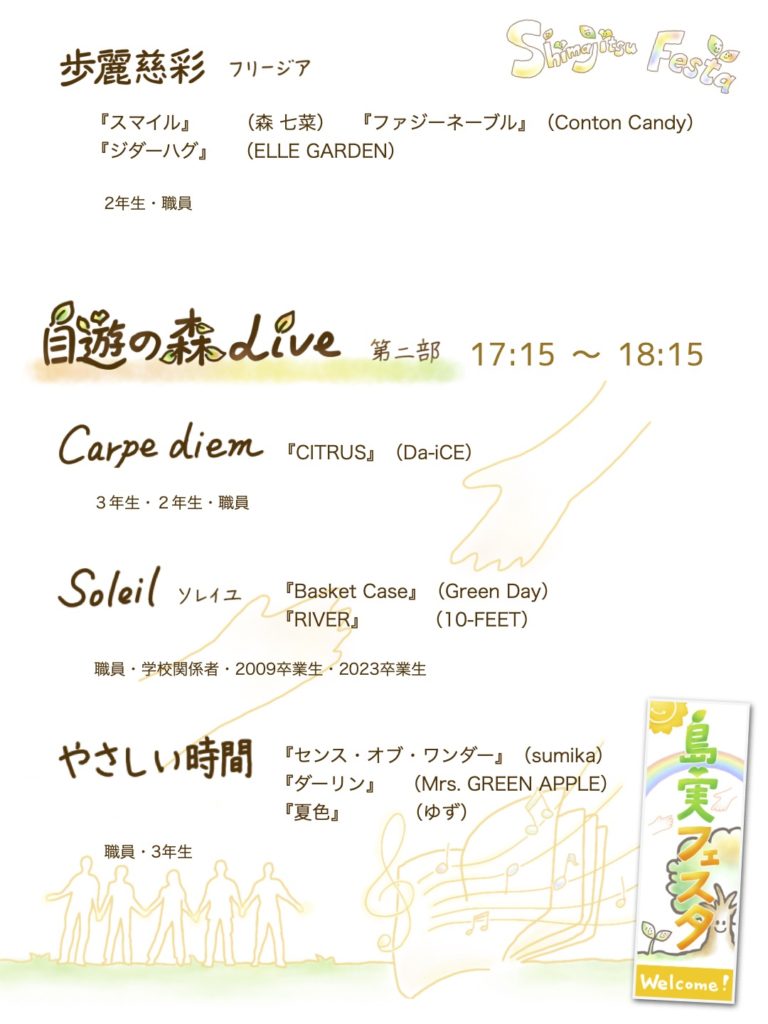 Shimajitsu Festa
歩麗慈彩 フリージア
『スマイル』 （森 七菜） 『ファジーネーブル』（Conton Candy）
『ジターハグ』 （ELLE GARDEN）
2年生・職員
自遊の森Live 第二部 17:15 〜 18:15
Carpe diem 『CITRUS』（Da-iCE）
３年生・２年生・職員
Soleil ソレイユ 『Basket Case』（Green Day）
『RIVER』 （10-FEET）
職員・学校関係者・2009卒業生・2023卒業生
やさしい時間 『センス・オブ・ワンダー』（sumika）
『ダーリン』 （Mrs. GREEN APPLE）
『夏色』 （ゆず）
職員・3年生
島実フェスタ
Welcome!